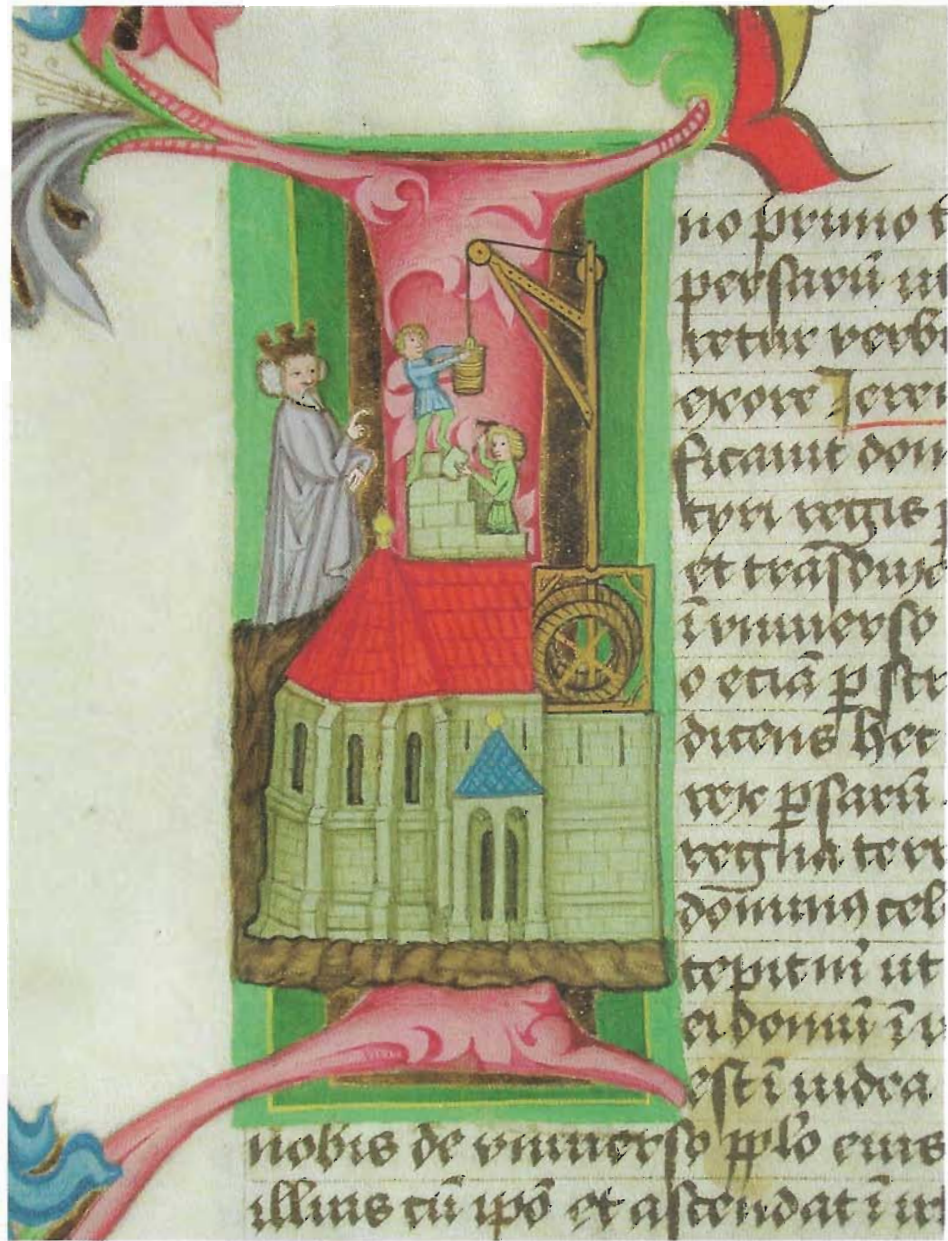 no primo
persarū
retur verb
ex ore Jere
ficauit dom
cyri regis
et trāsduxi
ī vniuerso
o eciā p scr
dicens hec
rex psarū
regna terr
dominꝯ cel
cepit m̄ ut
ei domū ī i
est ī iudea
nobis de vniuerso pplo eius
illius cū ipō et ascendat ī